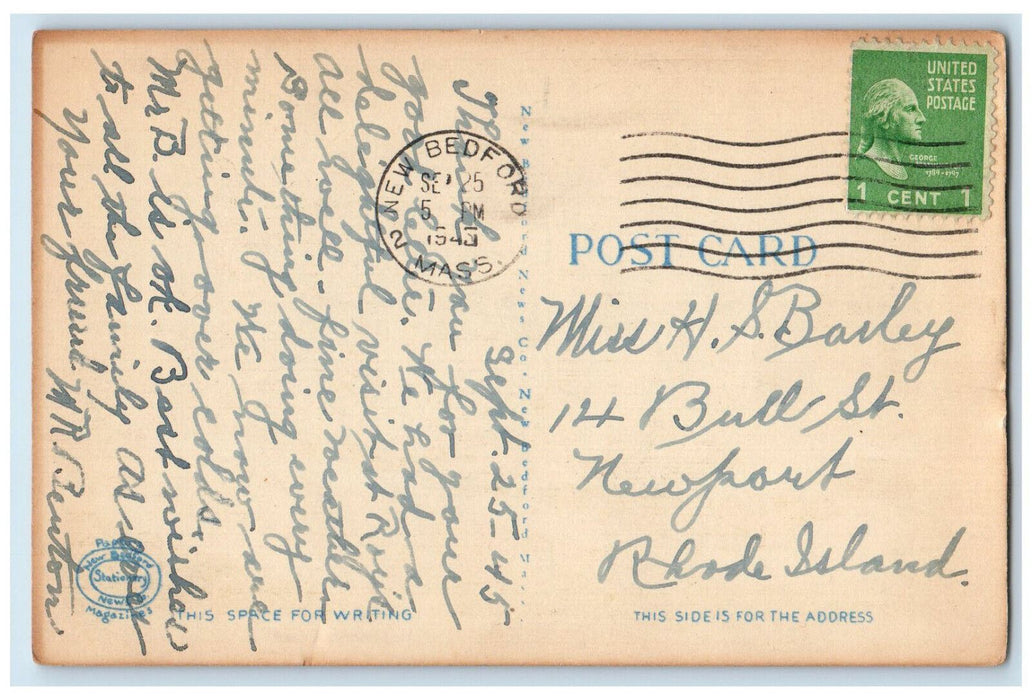 Sept. 25-45
Thank you for your
good side. We had a
delegtful visit at Roys
all well - fine weather
Something doing every
minute. We now are
getting over colds.
Mr B. is st. Best wishes
to all the family as ever
Your friend M R Benton
NEW BEDFORD
SEP 25
5 PM
1945
2 MASS.
UNITED
STATES
POSTAGE
GEORGE
1789-1797
1 CENT 1
POST CARD
Miss H. S. Barley
14 Bull St.
Newport
Rhode Island.
New Bedford News Co., New Bedford Mass.
New Bedford
Stationery
News Co
Magazines
THIS SPACE FOR WRITING
THIS SIDE IS FOR THE ADDRESS